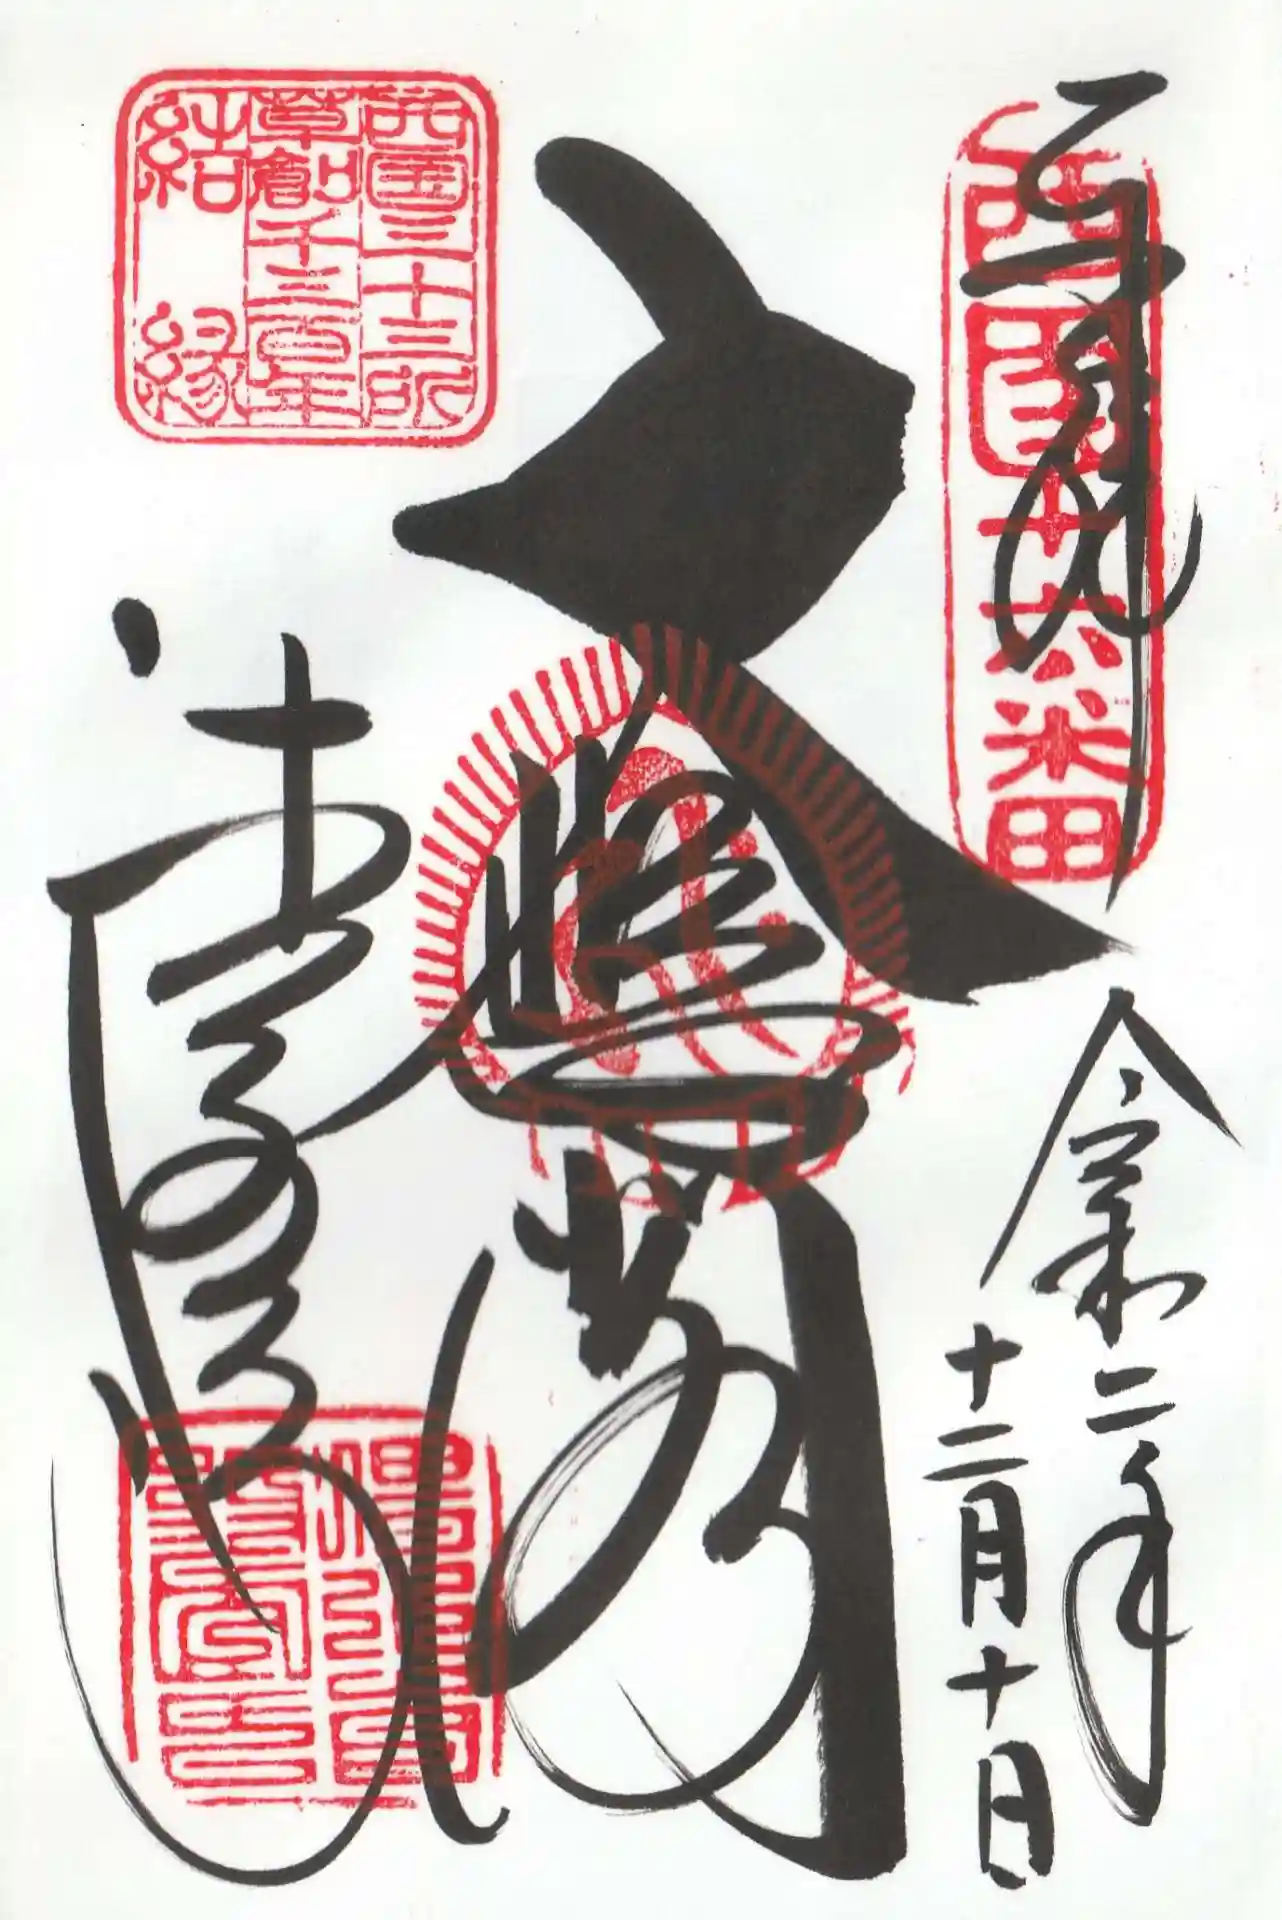 奉拝
西国十六番
令和二年
十二月十日
大悲閣
西国三十三所
草創千三百年
結縁
清水寺